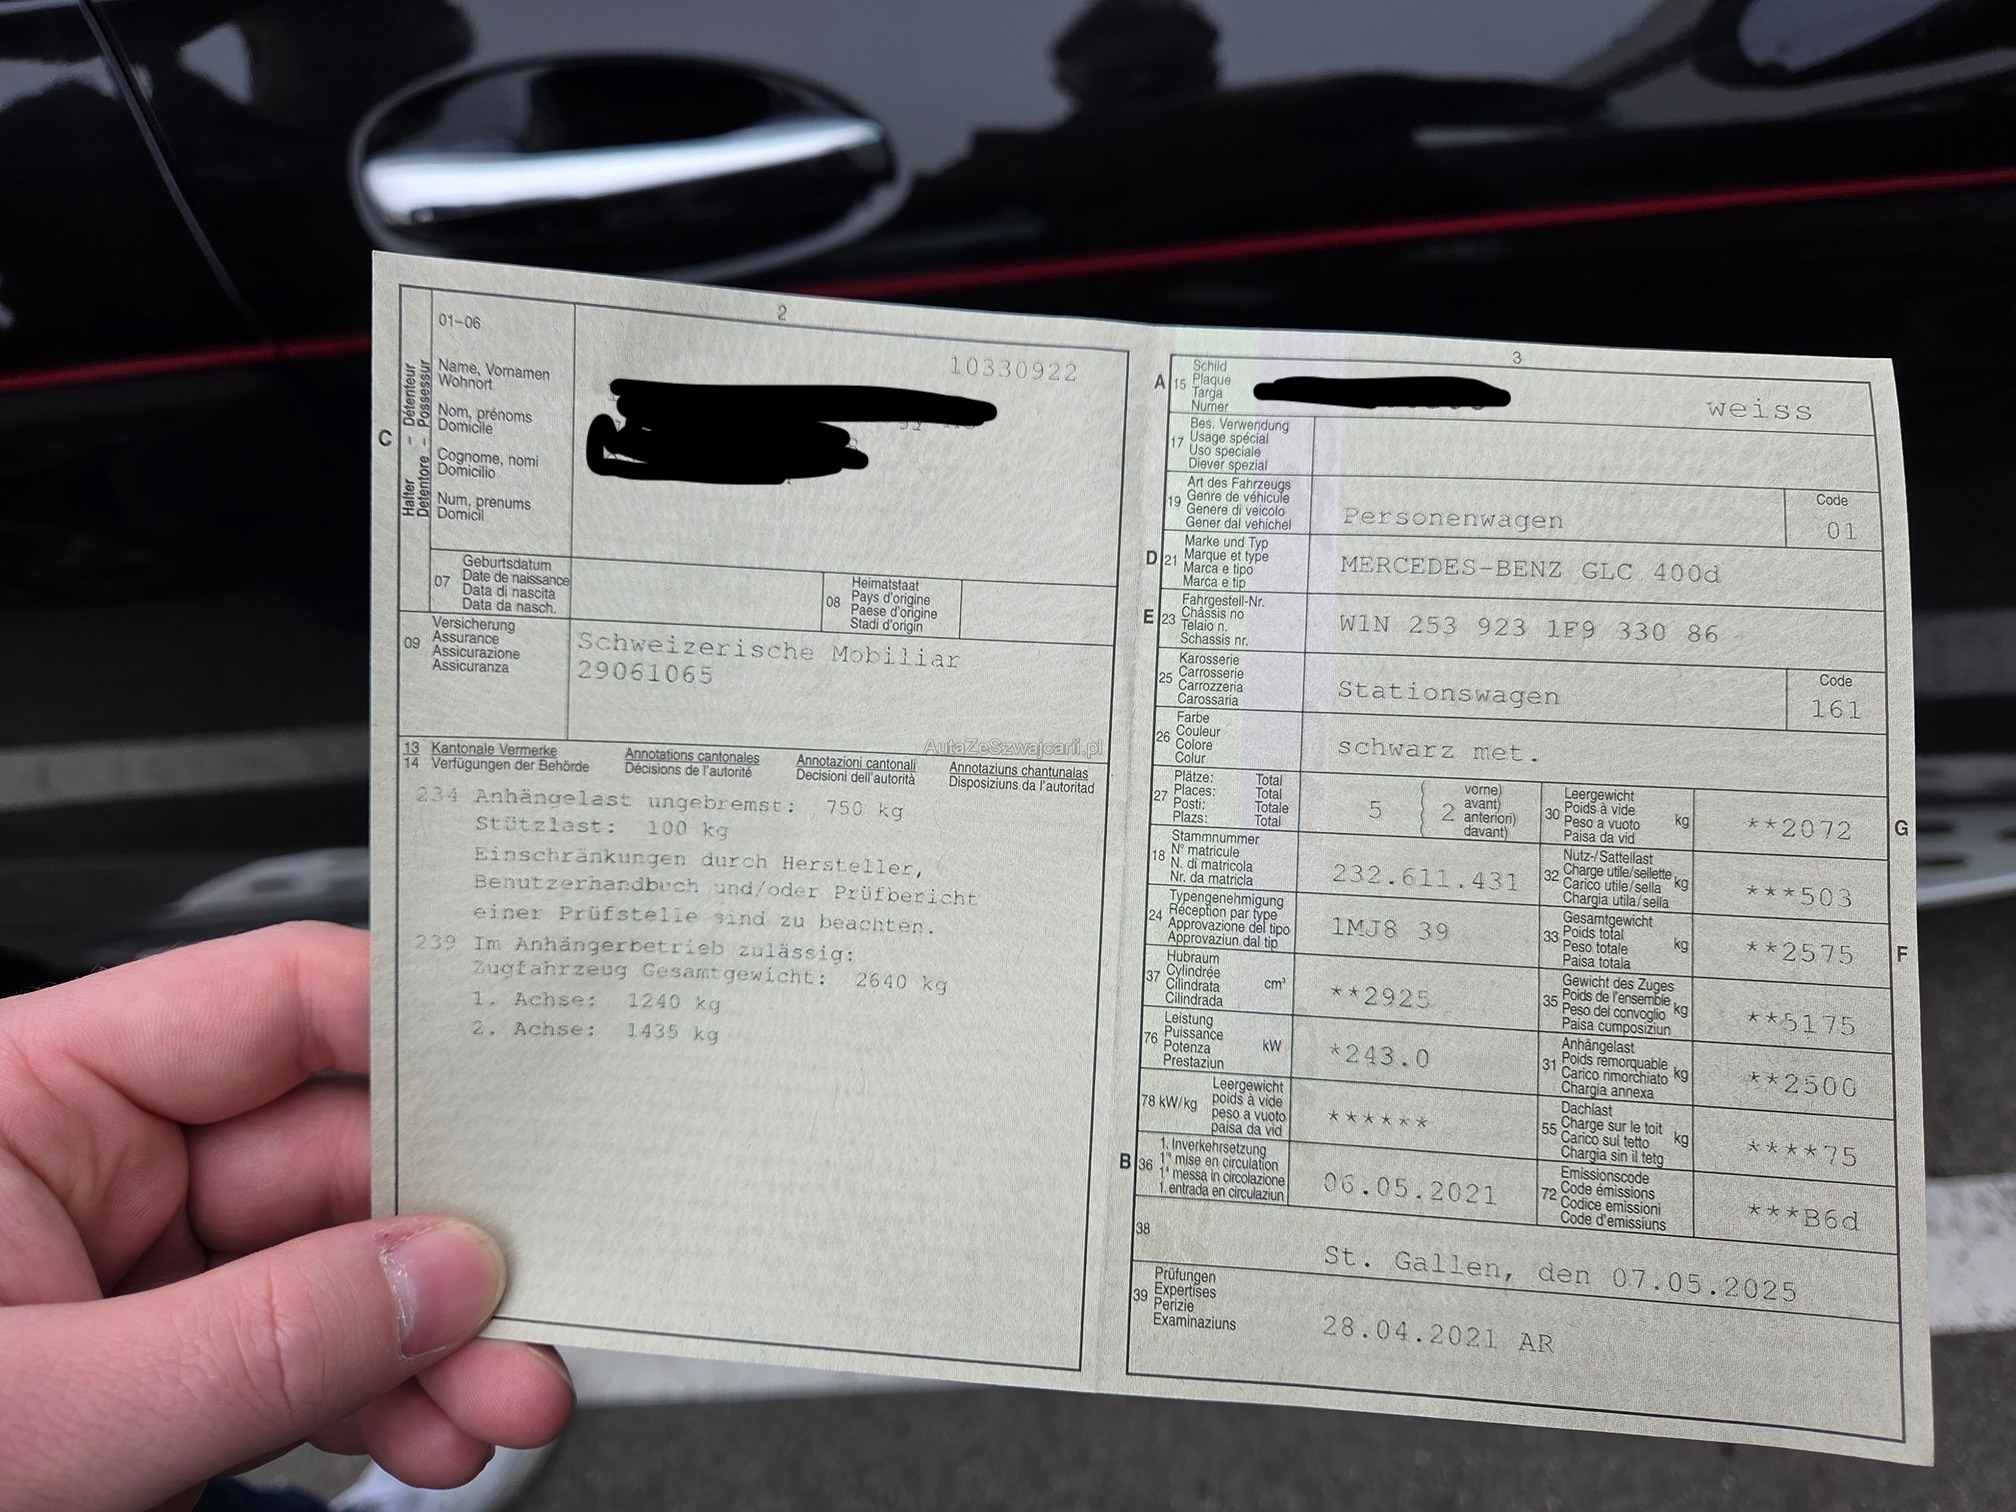 2
01-06
10330922
Name, Vornamen
Wohnort
Nom, prénoms
Domicile
Cognome, nomi
Domicilio
Num, prenums
Domicil
C
Halter - Détenteur
Detentore - Possessur
07
Geburtsdatum
Date de naissance
Data di nascita
Data da nasch.
08
Heimatstaat
Pays d'origine
Paese d'origine
Stadi d'origin
09
Versicherung
Assurance
Assicurazione
Assicuranza
Schweizerische Mobiliar
29061065
AutaZeSzwajcarii.pl
13 Kantonale Vermerke
14 Verfügungen der Behörde
Annotations cantonales
Décisions de l'autorité
Annotazioni cantonali
Decisioni dell'autorità
Annotaziuns chantunalas
Disposiziuns da l'autoritad
234 Anhängelast ungebremst: 750 kg
Stützlast: 100 kg
Einschränkungen durch Hersteller,
Benutzerhandbuch und/oder Prüfbericht
einer Prüfstelle sind zu beachten.
239 Im Anhängerbetrieb zulässig:
Zugfahrzeug Gesamtgewicht: 2640 kg
1. Achse: 1240 kg
2. Achse: 1435 kg
3
A
15
Schild
Plaque
Targa
Numer
weiss
17
Bes. Verwendung
Usage spécial
Uso speciale
Diever spezial
19
Art des Fahrzeugs
Genre de véhicule
Genere di veicolo
Gener dal vehichel
Personenwagen
Code
01
D
21
Marke und Typ
Marque et type
Marca e tipo
Marca e tip
MERCEDES-BENZ GLC 400d
E
23
Fahrgestell-Nr.
Châssis no
Telaio n.
Schassis nr.
W1N 253 923 1F9 330 86
25
Karosserie
Carrosserie
Carrozzeria
Carossaria
Stationswagen
Code
161
26
Farbe
Couleur
Colore
Colur
schwarz met.
27
Plätze: Total
Places: Total
Posti: Totale
Plazs: Total
5
2
vorne)
avant)
anteriori)
davant)
30
Leergewicht
Poids à vide
Peso a vuoto
Paisa da vid
kg
**2072
G
18
Stammnummer
N° matricule
N. di matricola
Nr. da matricla
232.611.431
32
Nutz-/Sattellast
Charge utile/sellette
Carico utile/sella
Chargia utila/sella
kg
***503
24
Typengenehmigung
Réception par type
Approvazione del tipo
Approvaziun dal tip
1MJ8 39
33
Gesamtgewicht
Poids total
Peso totale
Paisa totala
kg
**2575
F
37
Hubraum
Cylindrée
Cilindrata
Cilindrada
cm³
**2925
35
Gewicht des Zuges
Poids de l'ensemble
Peso del convoglio
Paisa cumposiziun
kg
**5175
76
Leistung
Puissance
Potenza
Prestaziun
kW
*243.0
31
Anhängelast
Poids remorquable
Carico rimorchiato
Chargia annexa
kg
**2500
78 kW/kg
Leergewicht
poids à vide
peso a vuoto
paisa da vid
******
55
Dachlast
Charge sur le toit
Carico sul tetto
Chargia sin il tetg
kg
****75
B
36
1. Inverkehrsetzung
1re mise en circulation
1a messa in circolazione
1. entrada en circulaziun
06.05.2021
72
Emissionscode
Code émissions
Codice emissioni
Code d'emissiuns
***B6d
38
St. Gallen, den 07.05.2025
39
Prüfungen
Expertises
Perizie
Examinaziuns
28.04.2021 AR